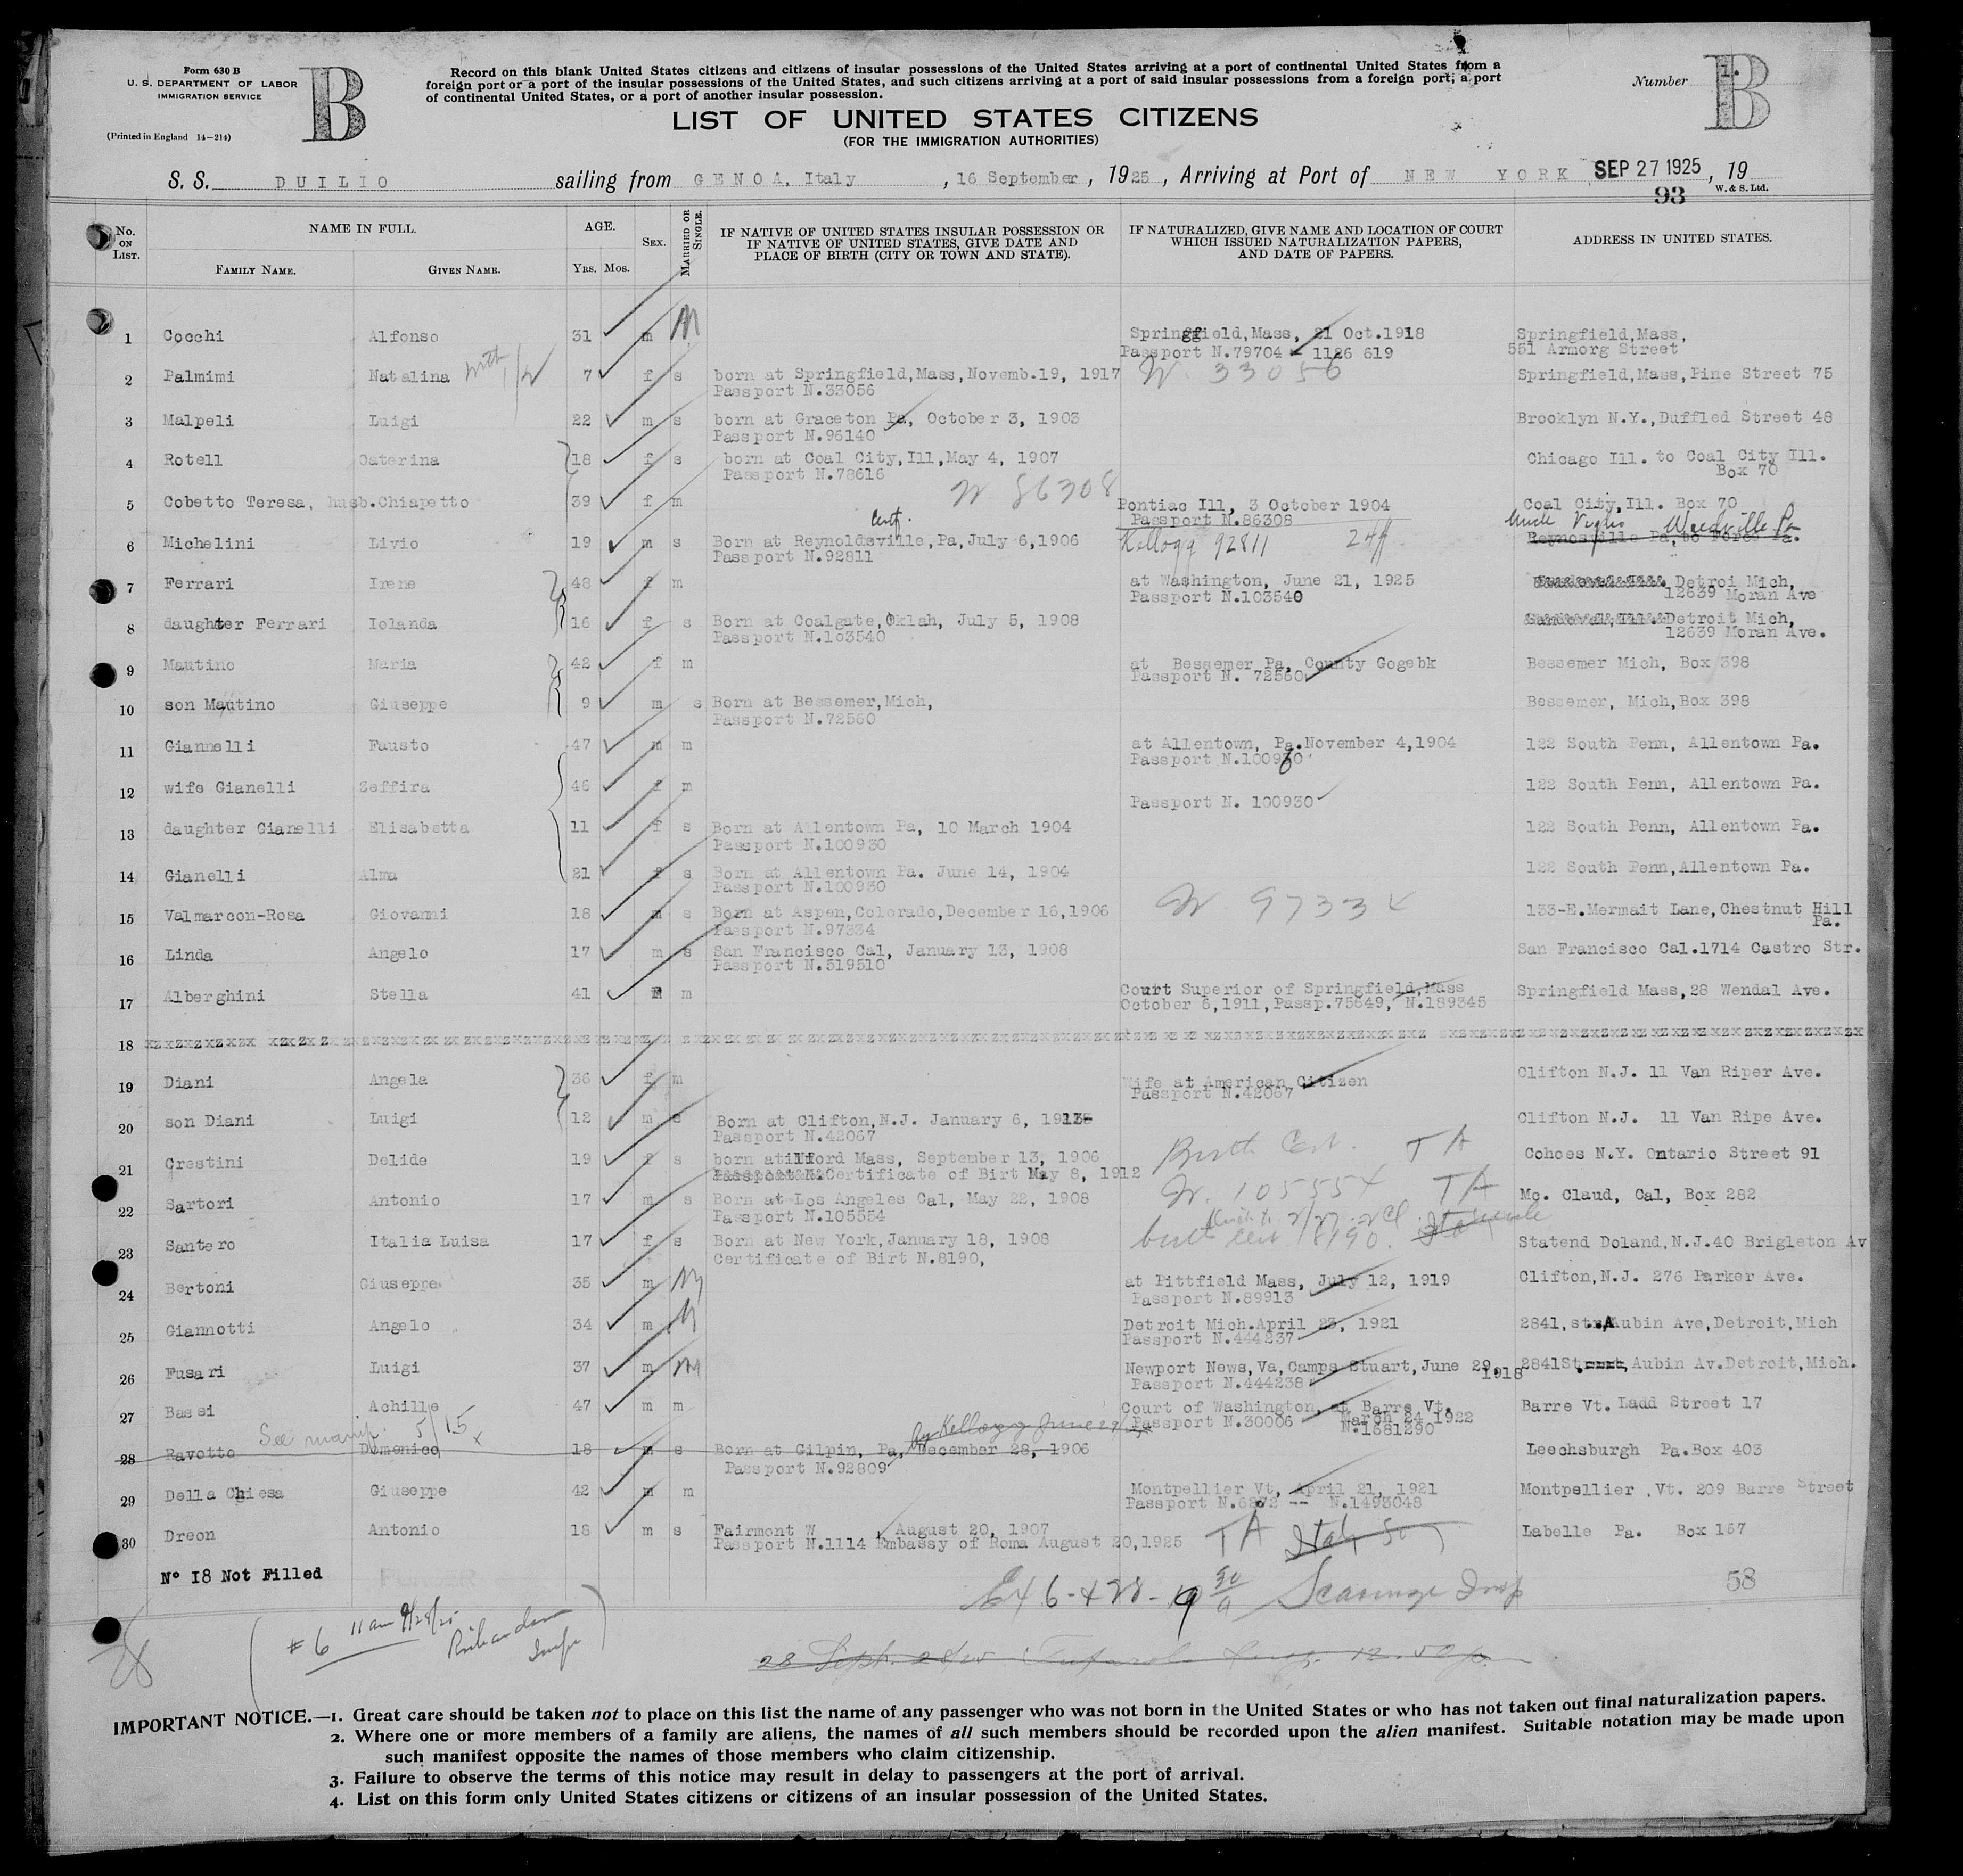 Form 630 B
U. S. DEPARTMENT OF LABOR
IMMIGRATION SERVICE
(Printed in England 14—214)
B
Record on this blank United States citizens and citizens of insular possessions of the United States arriving at a port of continental United States from a
foreign port or a port of the insular possessions of the United States, and such citizens arriving at a port of said insular possessions from a foreign port, a port
of continental United States, or a port of another insular possession.
LIST OF UNITED STATES CITIZENS
(FOR THE IMMIGRATION AUTHORITIES)
Number 1.
B
S. S. DUILIO sailing from GENOA, Italy, 16 September, 1925, Arriving at Port of NEW YORK SEP 27 1925, 19
W. & S. Ltd.
93
No. ON LIST. NAME IN FULL. AGE. SEX. MARRIED OR SINGLE. IF NATIVE OF UNITED STATES INSULAR POSSESSION OR IF NATIVE OF UNITED STATES, GIVE DATE AND PLACE OF BIRTH (CITY OR TOWN AND STATE). IF NATURALIZED, GIVE NAME AND LOCATION OF COURT WHICH ISSUED NATURALIZATION PAPERS, AND DATE OF PAPERS. ADDRESS IN UNITED STATES.
FAMILY NAME. GIVEN NAME. YRS. MOS.
1 Cocchi Alfonso 31 m M Springfield, Mass, 21 Oct.1918 Springfield,Mass,
Passport N.79704 - 1126 619 551 Armorg Street
2 Palmimi Natalina with 7 f s born at Springfield,Mass,Novemb.19, 1917 N. 33056 Springfield,Mass,Pine Street 75
Passport N.33056
3 Malpeli Luigi 22 m s born at Graceton Pa, October 3, 1903 Brooklyn N.Y.,Duffled Street 48
Passport N.96140
4 Rotell Caterina 18 f s born at Coal City,Ill,May 4, 1907 Chicago Ill. to Coal City Ill.
Passport N.78616 Box 70
N 86308
5 Cobetto Teresa, husb.Chiapetto 39 f m Pontiac Ill, 3 October 1904 Coal City,Ill. Box 70
Passport N.86308
cert. Uncle Woodville Pa
6 Michelini Livio 19 m s Born at Reynoldsville,Pa,July 6,1906 Kellogg 92811 Reynosville Pa, to Force Pa.
Passport N.92811
7 Ferrari Irene 48 f m at Washington, June 21, 1925 Detroi Mich,
Passport N.103540 12639 Moran Ave
8 daughter Ferrari Iolanda 16 f s Born at Coalgate,Oklah, July 5, 1908 Detroit Mich,
Passport N.103540 12639 Moran Ave.
9 Mautino Maria 42 f m at Bessemer Pa, County Gogebk Bessemer Mich, Box 398
Passport N. 72560
10 son Mautino Giuseppe 9 m s Born at Bessemer,Mich, Bessemer, Mich,Box 398
Passport N.72560
11 Giannelli Fausto 47 m m at Allentown, Pa.November 4,1904 122 South Penn, Allentown Pa.
Passport N.100930
12 wife Gianelli Zeffira 46 f m 122 South Penn, Allentown Pa.
Passport N. 100930
13 daughter Gianelli Elisabetta 11 f s Born at Allentown Pa, 10 March 1904 122 South Penn, Allentown Pa.
Passport N.100930
14 Gianelli Alma 21 f s Born at Allentown Pa. June 14, 1904 122 South Penn,Allentown Pa.
Passport N.100930
15 Valmarcon-Rosa Giovanni 18 m s Born at Aspen,Colorado,December 16,1906 N. 97334 133-E.Mermait Lane,Chestnut Hill
Passport N.97334 Pa.
16 Linda Angelo 17 m s San Francisco Cal, January 13, 1908 San Francisco Cal.1714 Castro Str.
Passport N.519510
17 Alberghini Stella 41 m Court Superior of Springfield,Mass Springfield Mass,28 Wendal Ave.
October 6,1911,Passp.75649, N.189345
18
19 Diani Angela 36 f m Wife at American Citizen Clifton N.J. 11 Van Riper Ave.
Passport N.42067
20 son Diani Luigi 12 m s Born at Clifton,N.J. January 6, 1913 Clifton N.J. 11 Van Ripe Ave.
Passport N.42067
21 Crestini Delide 19 f s born at Milford Mass, September 13, 1906 Birth Cert. TA Cohoes N.Y. Ontario Street 91
Certificate of Birt May 8, 1912
22 Sartori Antonio 17 m s Born at Los Angeles Cal, May 22, 1908 N. 105554 TA Mc. Claud, Cal, Box 282
Passport N.105554
23 Santero Italia Luisa 17 f s Born at New York,January 18, 1908 birth cert 8190. Statend Doland,N.J.40 Brigleton Av
Certificate of Birt N.8190,
24 Bertoni Giuseppe 35 m M at Pittfield Mass, July 12, 1919 Clifton,N.J. 276 Parker Ave.
Passport N.89913
25 Giannotti Angelo 34 m M Detroit Mich.April 23, 1921 2841,st.Aubin Ave,Detroit,Mich
Passport N.444237
26 Fusari Luigi 37 m M Newport News,Va,Camps Stuart,June 29, 1918 2841 Aubin Av.Detroit,Mich.
Passport N.444238
27 Bassi Achille 47 m m Court of Washington, at Barre Vt. Barre Vt. Ladd Street 17
Passport N.30006 March 24 1922
N.1681290
See manif. 5/15 x by Kellogg June 29/25
28 Ravotto Domenico 18 m s Born at Gilpin, Pa, December 28, 1906 Leechsburgh Pa.Box 403
Passport N.92809
29 Della Chiesa Giuseppe 42 m m Montpellier Vt, April 21, 1921 Montpellier ,Vt. 209 Barre Street
Passport N.6872 -- N.1493048
30 Dreon Antonio 18 m s Fairmont W , August 20, 1907 TA Labelle Pa. Box 167
Passport N.1114 Embassy of Roma August 20,1925
Nº 18 Not Filled
58
# 6 11 am 9/28/25
Richardson
Insp
28 Sept.
IMPORTANT NOTICE.—1. Great care should be taken not to place on this list the name of any passenger who was not born in the United States or who has not taken out final naturalization papers.
2. Where one or more members of a family are aliens, the names of all such members should be recorded upon the alien manifest. Suitable notation may be made upon
such manifest opposite the names of those members who claim citizenship.
3. Failure to observe the terms of this notice may result in delay to passengers at the port of arrival.
4. List on this form only United States citizens or citizens of an insular possession of the United States.